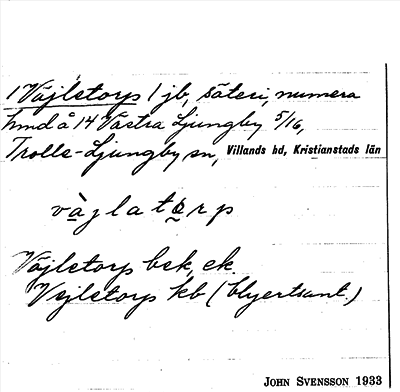 1 Väjletorp 1 jb, säteri, numera
hmd å 14 Västra Ljungby 5/16,
Trolle-Ljungby sn, Villands hd, Kristianstads län
vàjlatơrp
Väjletorp bek, ek.
Vejletorp kb (blyertsant.)
JOHN SVENSSON 1933